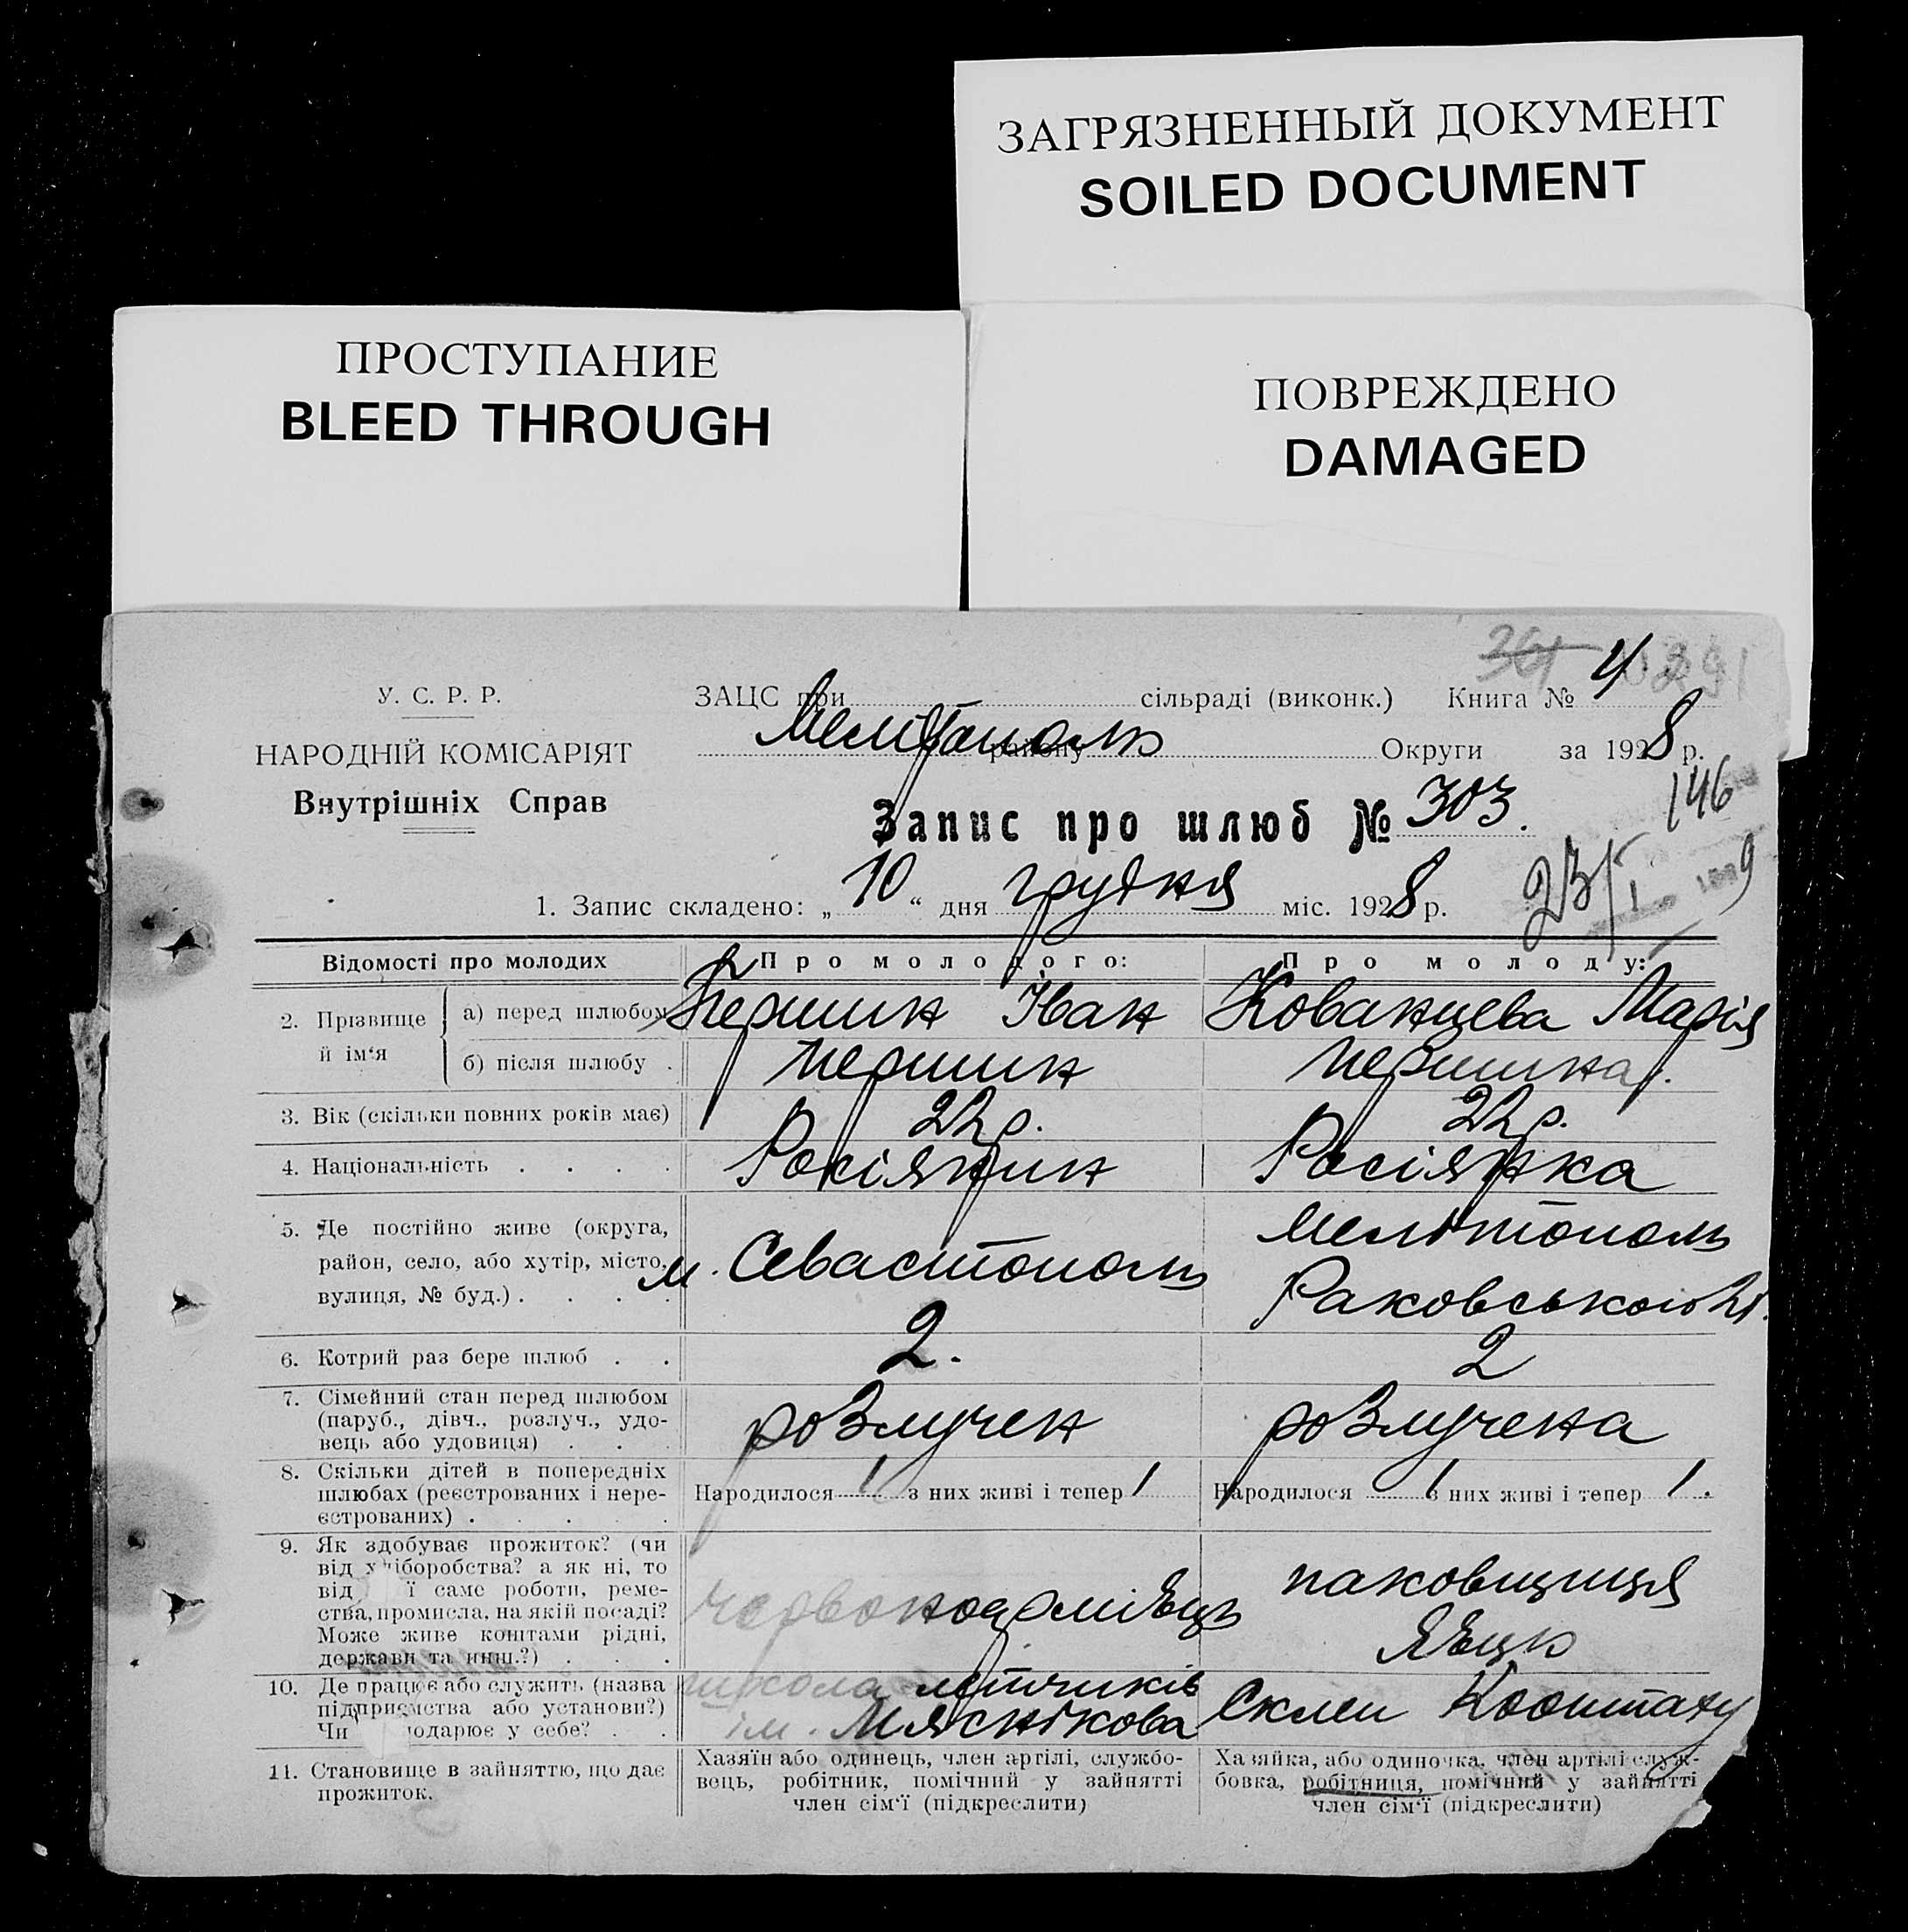 ЗАГРЯЗНЕННЫЙ ДОКУМЕНТ
SOILED DOCUMENT
ПРОСТУПАНИЕ
BLEED THROUGH
ПОВРЕЖДЕНО
DAMAGED
361
У. С. Р. Р.
ЗАЦС при сільраді (виконк.) Книга № 4
НАРОДНІЙ КОМІСАРІЯТ
Мелітополь району Округи за 1928 р.
Внутрішніх Справ
146
Запис про шлюб № 303.
1. Запис складено: „10“ дня грудня міс. 1928 р.
23/I 9
Відомості про молодих
Про молодого:
Про молоду:
2. Прізвище й ім'я
а) перед шлюбом
Першин Іван
Кованцева Марія
б) після шлюбу .
Першин
Першина.
3. Вік (скільки повних років має)
22 р.
22 р.
4. Національність . . . .
Росіянин
Росіянка
5. Де постійно живе (округа,
район, село, або хутір, місто,
вулиця, № буд.) . . . .
м. Севастополь
Мелітополь
Раковського 21.
6. Котрий раз бере шлюб . .
2.
2
7. Сімейний стан перед шлюбом
(паруб., дівч., розлуч., удо-
вець або удовиця) . . .
розлучен
розлучена
8. Скільки дітей в попередніх
шлюбах (реєстрованих і нере-
єстрованих) . . . . .
Народилося 1 з них живі і тепер 1
Народилося 1 з них живі і тепер 1.
9. Як здобуває прожиток? (чи
від хліборобства? а як ні, то
від ї саме роботи, реме-
ства, промисла, на якій посаді?
Може живе коштами рідні,
держави та инш.?) . . .
червоноармієць
паковщиця
Яєць
10. Де працює або служить (назва
підприємства або установи?)
Чи господарює у себе? . .
школа літчиків
ім. Мяснікова
Склеп
11. Становище в зайняттю, що дає
прожиток.
Хазяїн або одинець, член артілі, службо-
вець, робітник, помічний у зайнятті
член сім'ї (підкреслити)
Хазяйка, або одиночка, член артілі служ-
бовка, робітниця, помічний у зайнятті
член сім'ї (підкреслити)